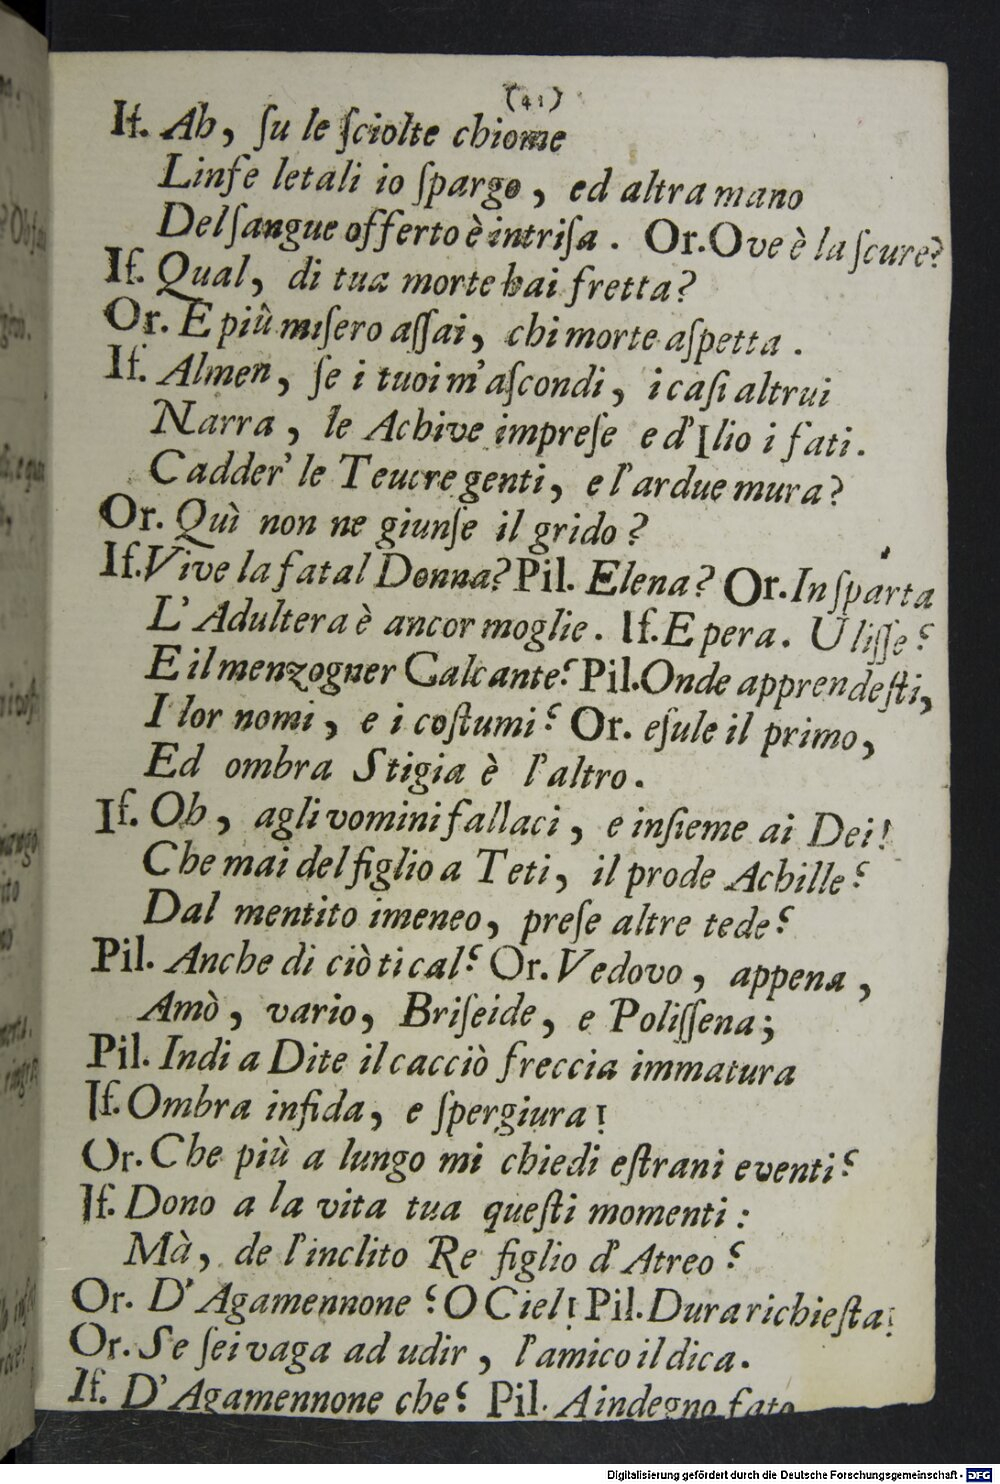 (41)
If. Ah, ſu le ſciolte chiome
Linfe letali io ſpargo, ed altra mano
Del ſangue offerto è intriſa. Or. Ove è la ſcure?
If. Qual, di tua morte hai fretta?
Or. E più miſero aſſai, chi morte aſpetta.
If. Almen, ſe i tuoi m'aſcondi, i caſi altrui
Narra, le Achive impreſe e d'Ilio i fati.
Cadder' le Teucre genti, e l'ardue mura?
Or. Quì non ne giunſe il grido?
If. Vive la fatal Donna? Pil. Elena? Or. In ſparta
L'Adultera è ancor moglie. If. E pera. Uliſſe?
E il menzogner Calcante? Pil. Onde apprendeſti,
I lor nomi, e i coſtumi? Or. eſule il primo,
Ed ombra Stigia è l'altro.
If. Oh, agli vomini fallaci, e inſieme ai Dei!
Che mai del figlio a Teti, il prode Achille?
Dal mentito imeneo, preſe altre tede?
Pil. Anche di ciò ti cal? Or. Vedovo, appena,
Amò, vario, Briſeide, e Poliſſena;
Pil. Indi a Dite il cacciò freccia immatura
If. Ombra infida, e ſpergiura!
Or. Che più a lungo mi chiedi eſtrani eventi?
If. Dono a la vita tua queſti momenti:
Mà, de l'inclito Re figlio d'Atreo?
Or. D'Agamennone? O Ciel! Pil. Dura richieſta!
Or. Se ſei vaga ad udir, l'amico il dica.
If. D'Agamennone che? Pil. A indegno fato
Digitalisierung gefördert durch die Deutsche Forschungsgemeinschaft - DFG